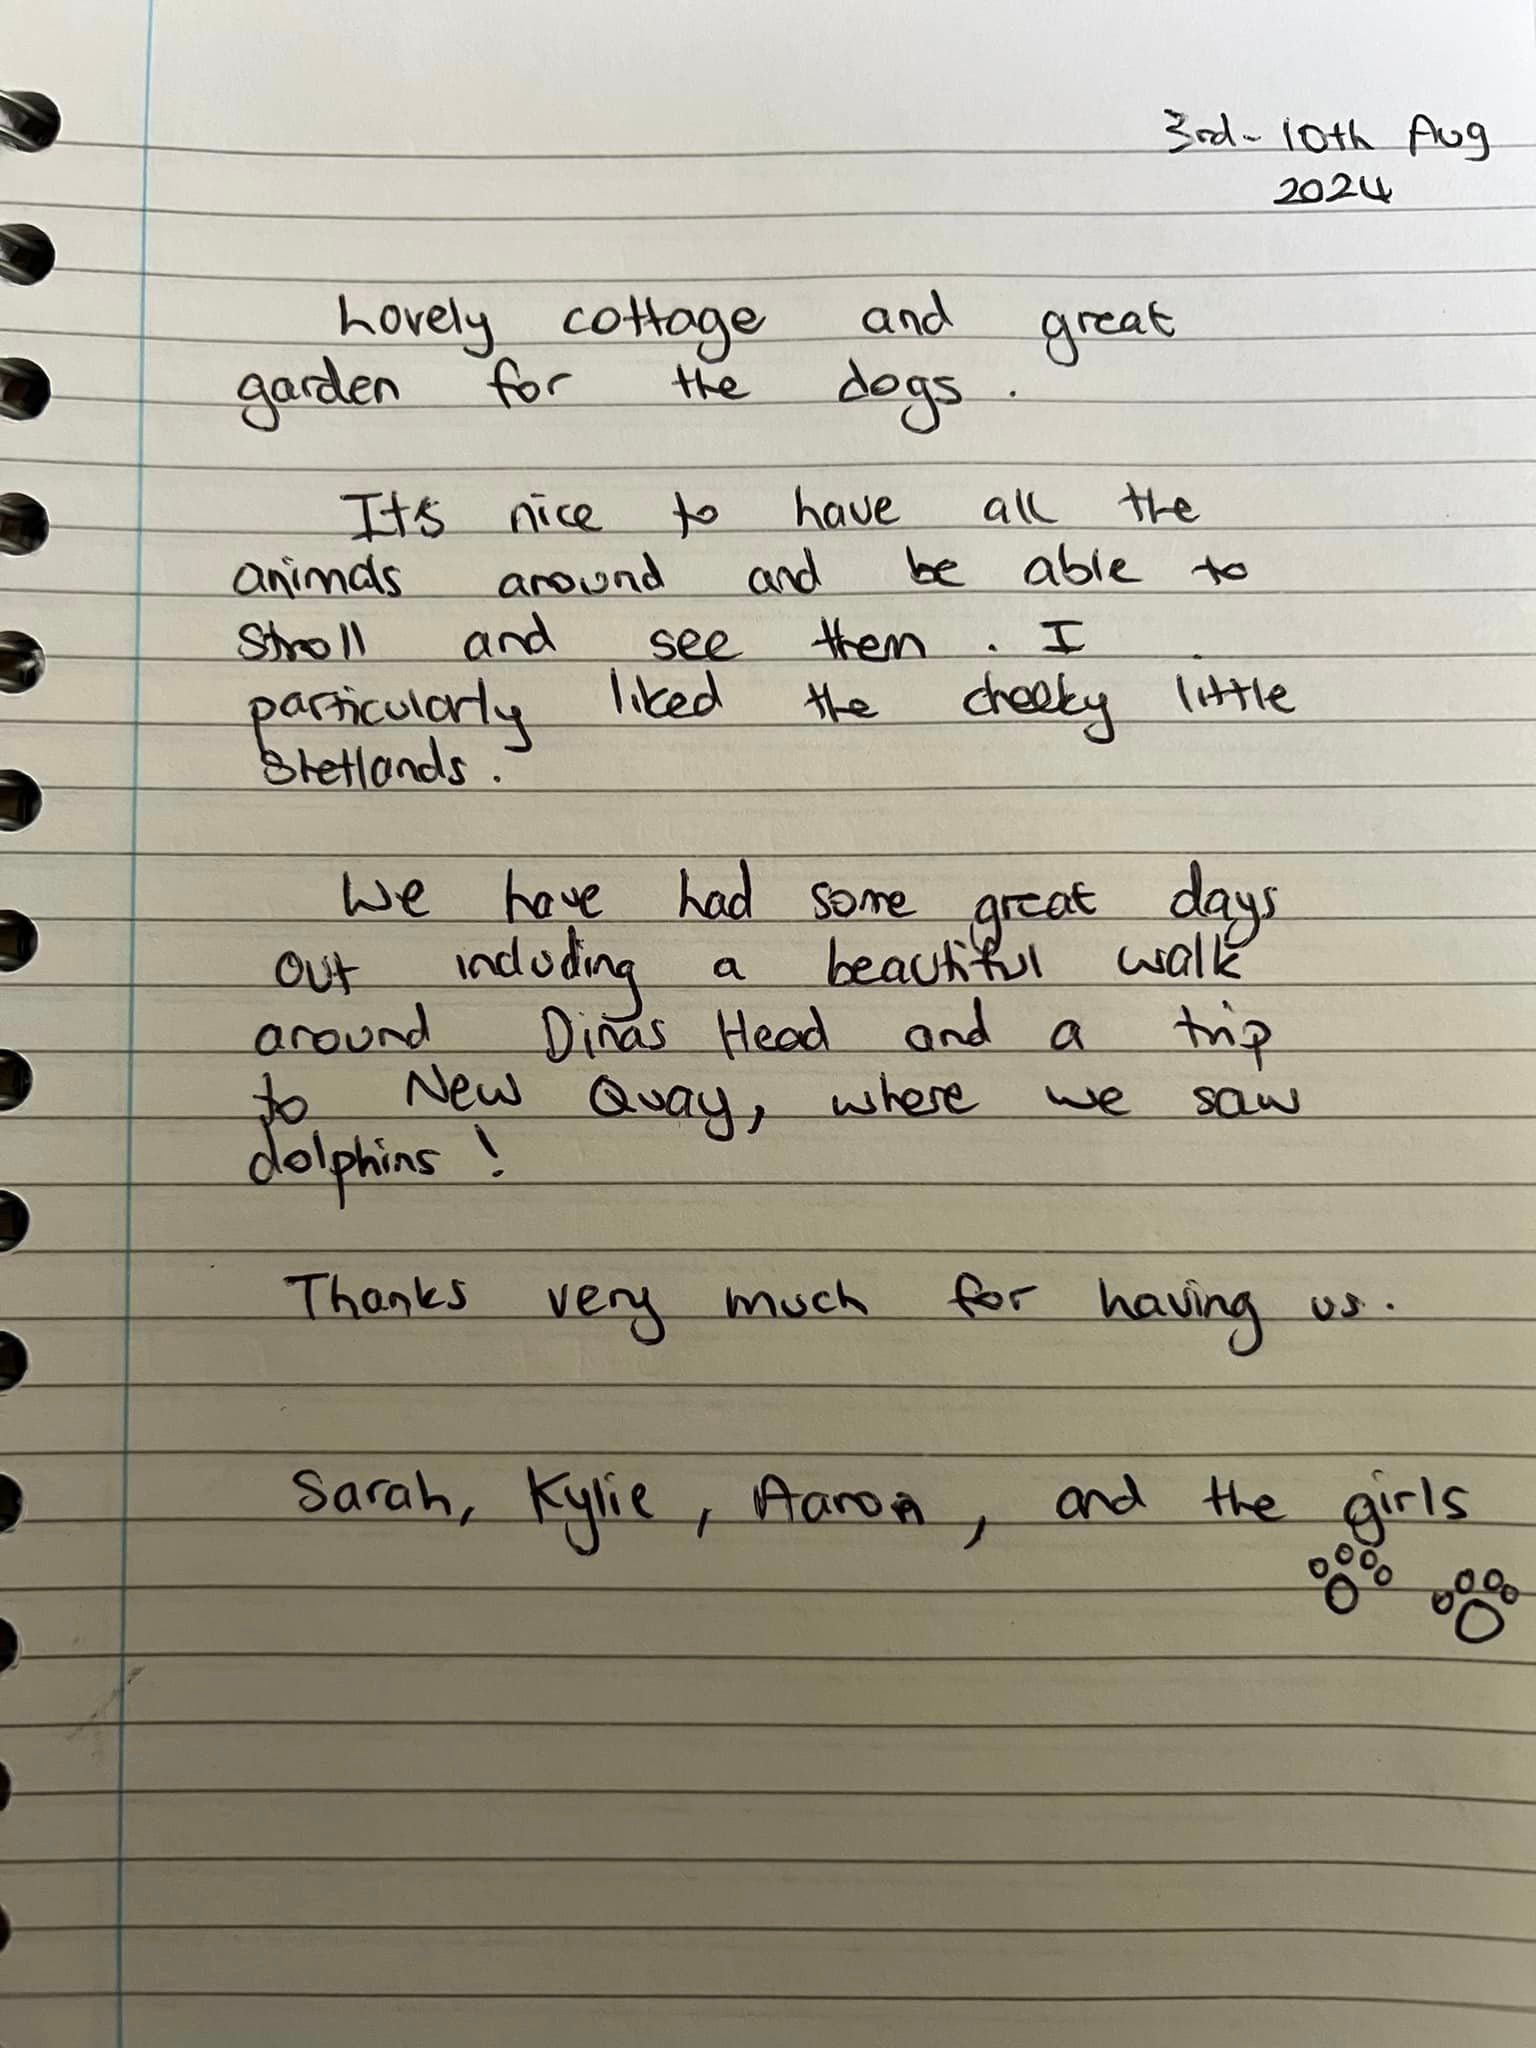 3rd - 10th Aug
2024
Lovely cottage and great
garden for the dogs.
Its nice to have all the
animals around and be able to
stroll and see them. I
particularly liked the cheeky little
Shetlands.
We have had some great days
out including a beautiful walk
around Dinas Head and a trip
to New Quay, where we saw
dolphins!
Thanks very much for having us.
Sarah, Kylie, Aaron, and the girls